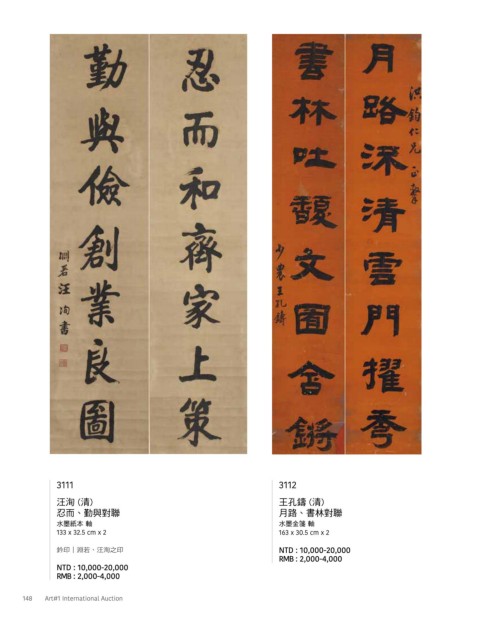 忍而和齊家上策
勤與儉創業良圖
淵若汪洵書
月路深清雲門擢秀
洪鈞仁兄正擊
書林吐馥文囿含鏘
少農王孔鑄
3111
汪洵 (清)
忍而、勤與對聯
水墨紙本 軸
133 x 32.5 cm x 2
鈐印｜淵若、汪洵之印
NTD : 10,000-20,000
RMB : 2,000-4,000
3112
王孔鑄 (清)
月路、書林對聯
水墨金箋 軸
163 x 30.5 cm x 2
NTD : 10,000-20,000
RMB : 2,000-4,000
148 Art#1 International Auction